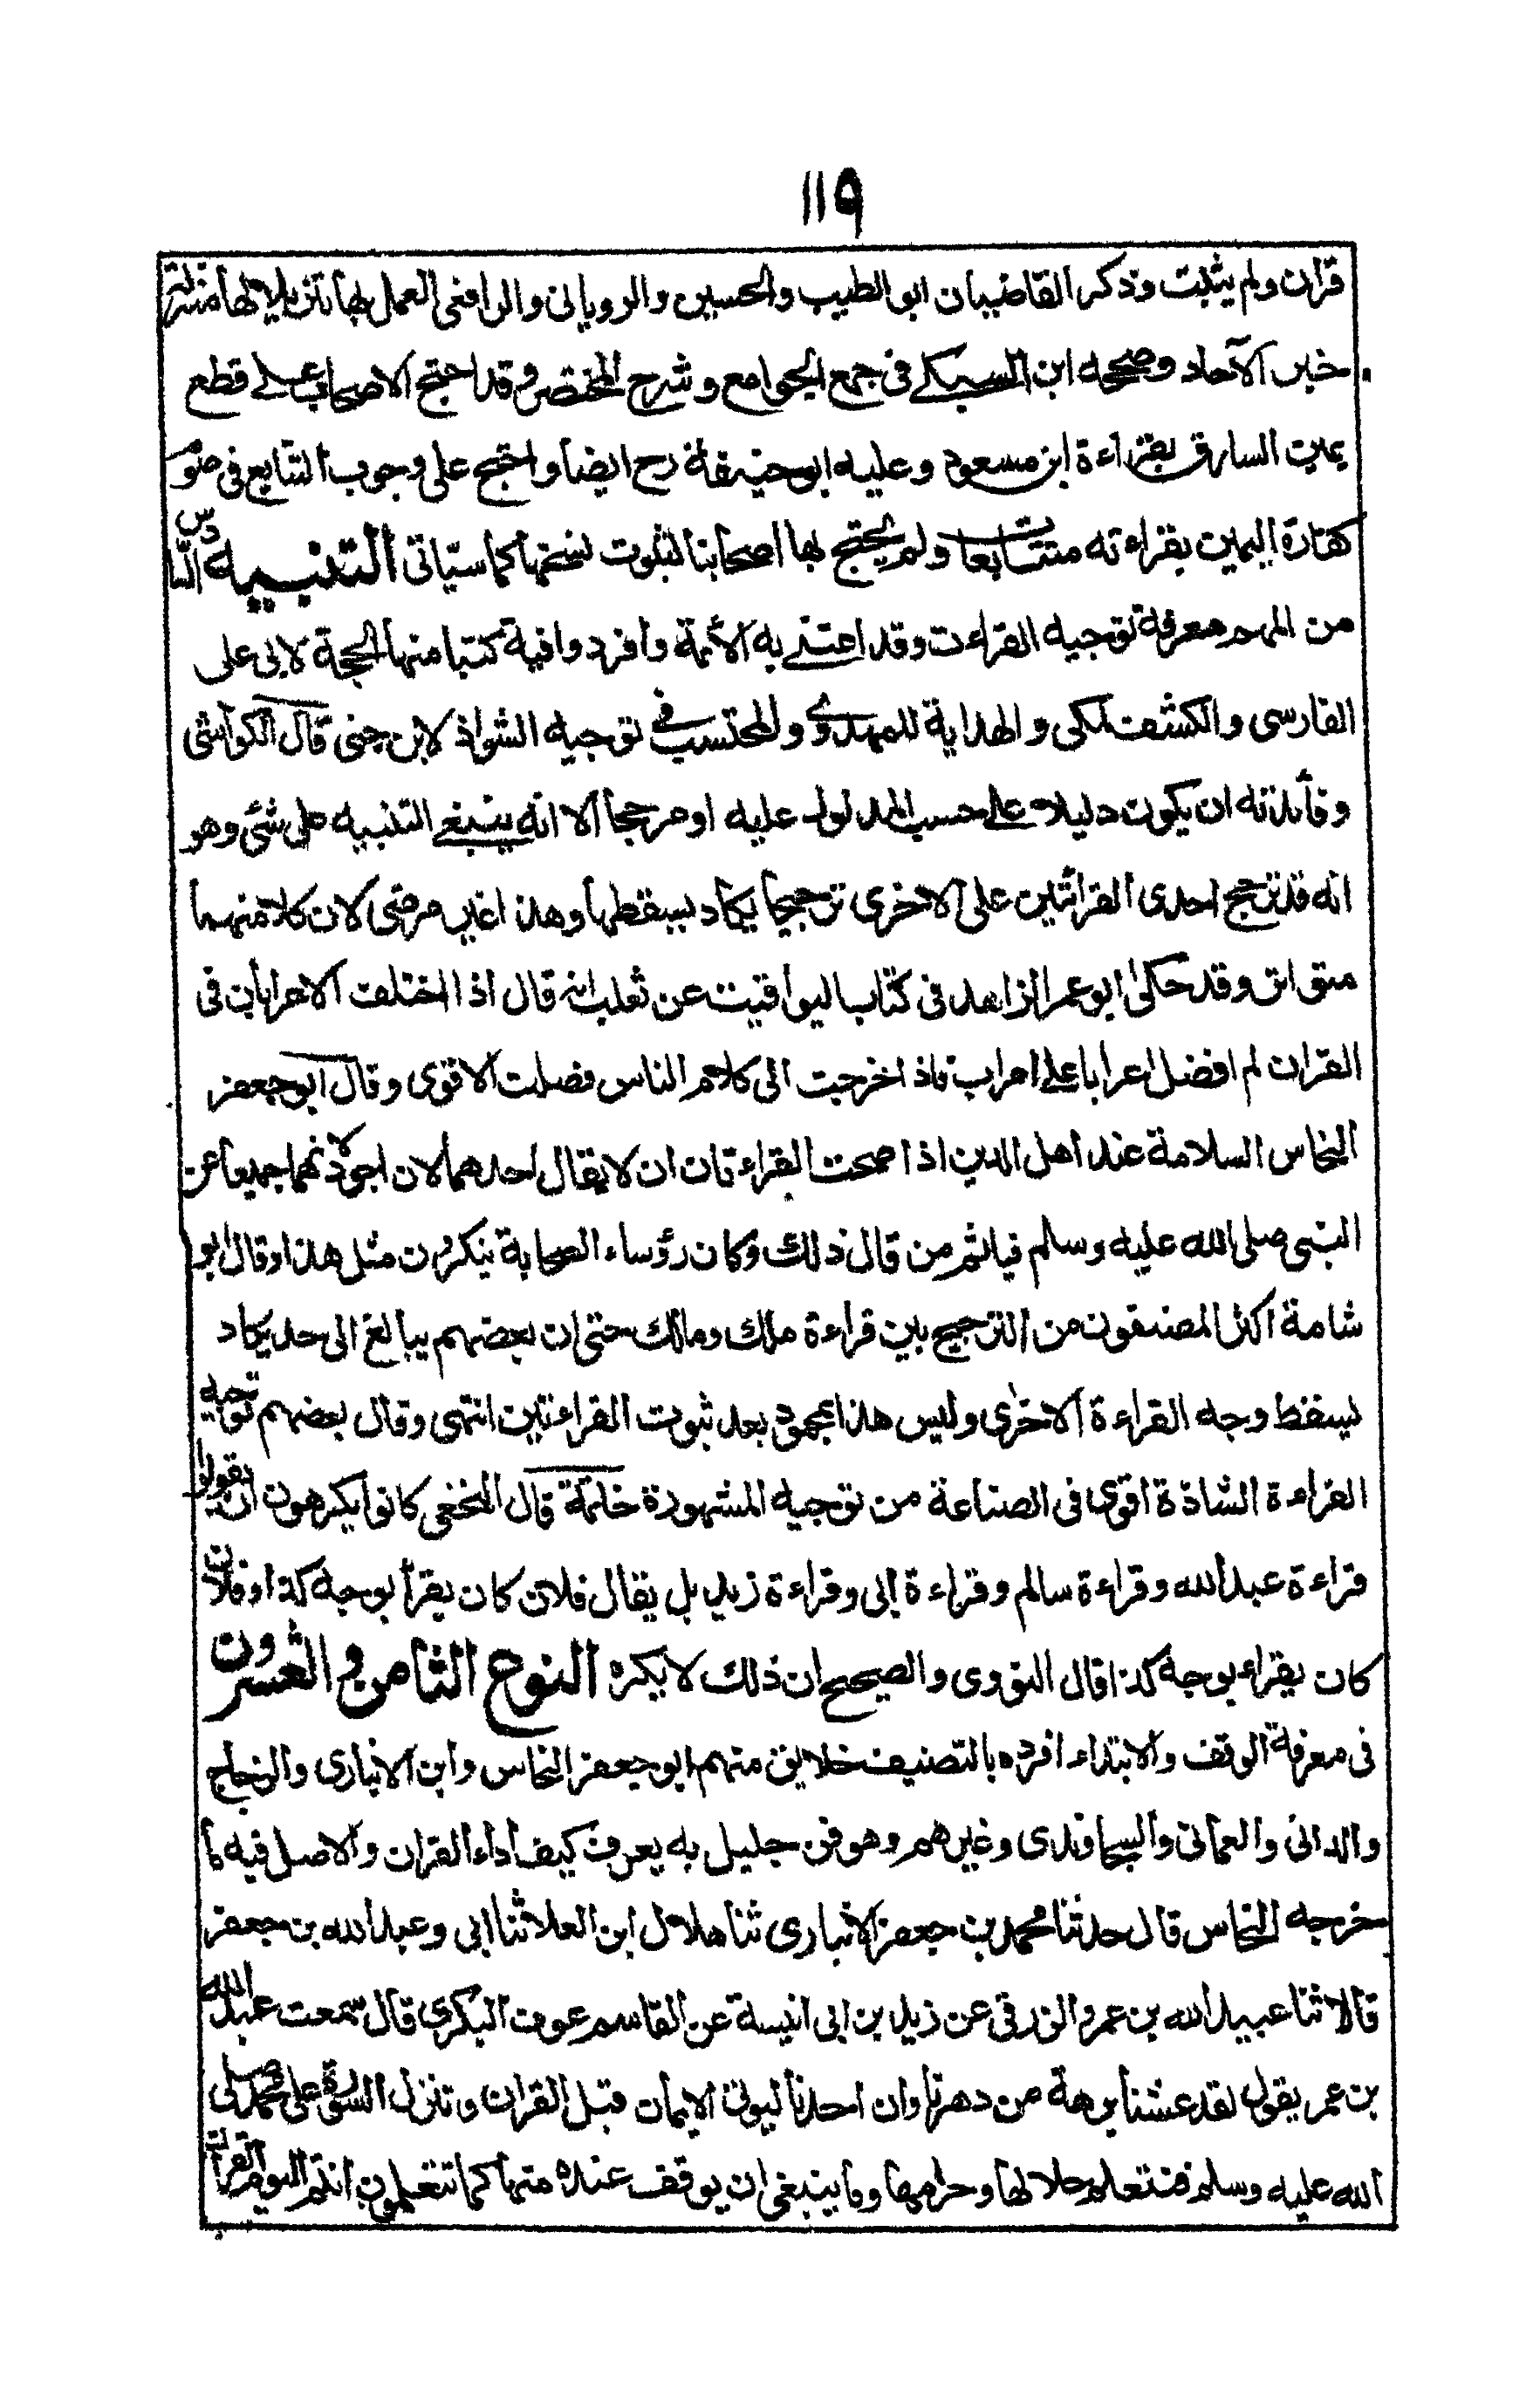 ١١٩
قرآن ولم يثبت وذكر القاضيان ابو الطيب والحسين والرويانى والرافعى العمل بها تنزيلا لها منزلة
خبر الآحاد وصححه ابن السبكے فى جمع الجوامع وشرح المختصر وقد احتج الاصحاب علے قطع
يمين السارق بقراءة ابن مسعود وعليه ابو حنيفة رح ايضا واحتج على وجوب التتابع فى صوم
كفارة اليمين بقراءته متتابعات ولم يحتج بها اصحابنا لثبوت نسخها كما سيأتى التنبيه السادس
من المهم معرفة توجيه القراءت وقد اعتنے به الأئمة وأفردوا فيه كتبا منها الحجة لابى على
الفارسى والكشف لمكى والهداية للمهدوى والمحتسب فى توجيه الشواذ لابن جنى قال الكواشى
وفائدته ان يكون دليلا علے حسب المدلول عليه او مرجحا الا انه ينبغے التنبيه على شئى وهو
انه قد ترجح احدى القرائتين على الاخرى ترجيحا يكاد يسقطها وهذا غير مرضى لان كلا منهما
متواتر وقد حكى ابو عمر الزاهد فى كتاب اليواقيت عن ثعلب انه قال اذا اختلف الاعرابان فى
القران لم افضل اعرابا علے اعراب فاذا خرجت الى كلام الناس فضلت الاقوى وقال ابو جعفر
النحاس السلامة عند اهل الدين اذا صحت القراءتان ان لا يقال احدهما اجود لانهما جميعا عن
النبى صلى الله عليه وسلم فياثم من قال ذلك وكان رؤساء الصحابة ينكرون مثل هذا وقال ابو
شامة اكثر المصنفون من الترجيح بين قراءة ملك ومالك حتى ان بعضهم يبالغ الى حد يكاد
يسقط وجه القراءة الاخرى وليس هذا بمحمود بعد ثبوت القراءتين انتهى وقال بعضهم توجيه
القراءة الشاذة اقوى فى الصناعة من توجيه المشهورة خاتمة قال النخعى كانوا يكرهون ان يقولوا
قراءة عبد الله وقراءة سالم وقراءة ابى وقراءة زيد بل يقال فلان كان يقرأ بوجه كذا وفلان
كان يقراء بوجه كذا قال النووى والصحيح ان ذلك لا يكره النوع الثامن والعشرون
فى معرفة الوقف والابتداء افرده بالتصنيف خلايق منهم ابو جعفر النحاس وابن الانبارى والزجاج
والدانى والعمانى والسجاوندى وغيرهم وهو فن جليل به يعرف كيف أداء القران والاصل فيه ما
خرجه النحاس قال حدثنا محمد بن جعفر الانبارى ثنا هلال ابن العلا ثنا ابى وعبد الله بن جعفر
قالا ثنا عبيد الله بن عمرو الزرقى عن زيد بن ابى انيسة عن القاسم عوف البكرى قال سمعت عبد الله
بن عمر يقول لقد عشنا برهة من دهرنا وان احدنا ليوتى الايمان قبل القران وتنزل السورة على محمد صلى
الله عليه وسلم فنتعلم حلالها وحرامها وما ينبغى ان يوقف عنده منها كما تتعلمون انتم اليوم القرآن